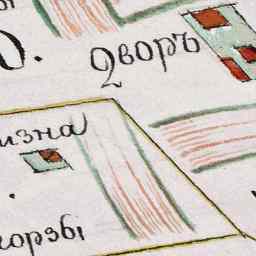 О.
Дворъ
изна
горзы